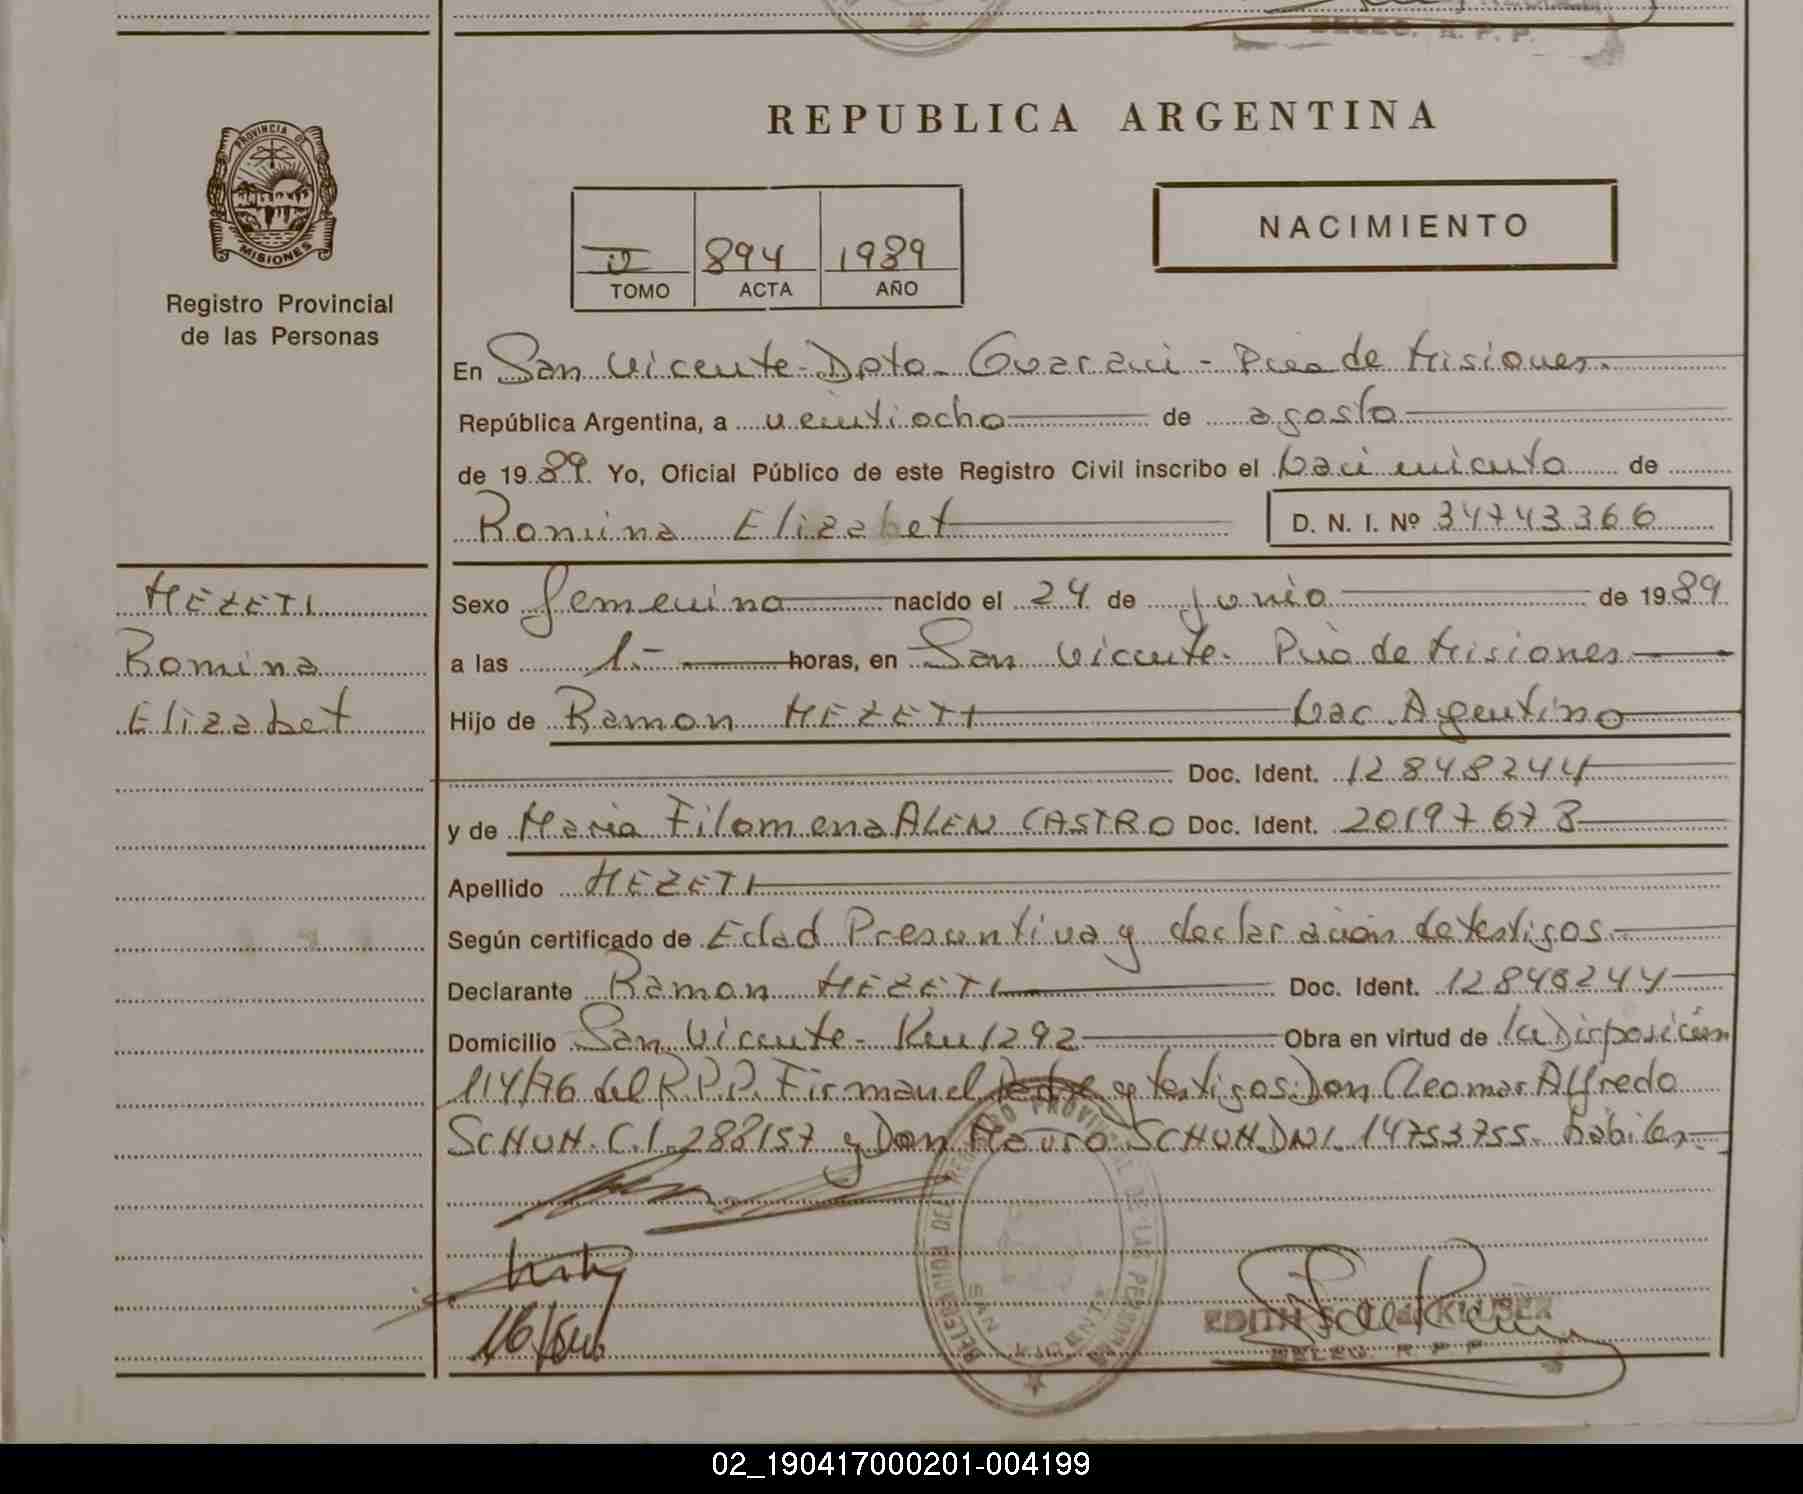 DELEG. R. P. P.
REPUBLICA ARGENTINA
PROVINCIA DE
MISIONES
Registro Provincial
de las Personas
NACIMIENTO
II 894 1989
TOMO ACTA AÑO
En San Vicente - Dpto. Guarani - Pcia de Misiones.
República Argentina, a veintiocho de agosto
de 1989. Yo, Oficial Público de este Registro Civil inscribo el Nacimiento de
Romina Elizabet D. N. I. Nº 34743366
MEZETI
Romina
Elizabet
Sexo femenino nacido el 24 de junio de 1989
a las 1.- horas, en San Vicente. Pcia de Misiones
Hijo de Ramon MEZETI Nac. Argentino
Doc. Ident. 12848244
y de Maria Filomena ALEN CASTRO Doc. Ident. 20197673
Apellido MEZETI
Según certificado de Edad Presuntiva y declaración de testigos.
Declarante Ramon MEZETI Doc. Ident. 12848244
Domicilio San Vicente - Km 1292 Obra en virtud de la Disposición
114/76 del R.P.P. Firman el Padre y testigos: Don Cleomar Alfredo
SCHUH. C.I. 288157 y Don Mauro SCHUH DNI. 14753755. hábiles.
DELEGACION DEL REGISTRO PROVINCIAL DE LAS PERSONAS
SAN VICENTE
EDITH
DELEG. R. P. P.
02_190417000201-004199